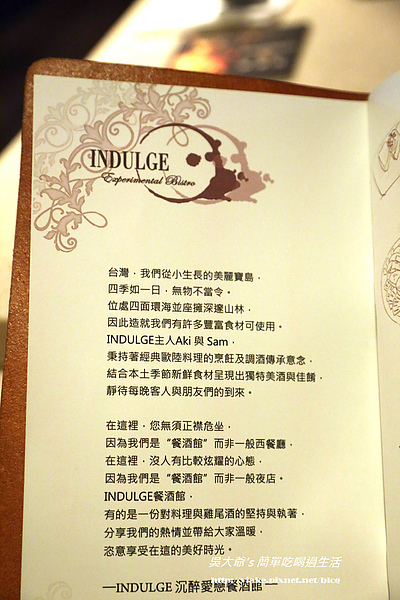 INDULGE
Experimental Bistro
台灣，我們從小生長的美麗寶島，
四季如一日，無物不當令。
位處四面環海並座擁深邃山林，
因此造就我們有許多豐富食材可使用。
INDULGE主人Aki 與 Sam，
秉持著經典歐陸料理的烹飪及調酒傳承意念，
結合本土季節新鮮食材呈現出獨特美酒與佳餚，
靜待每晚客人與朋友們的到來。
在這裡，您無須正襟危坐，
因為我們是“餐酒館”而非一般西餐廳，
在這裡，沒人有比較炫耀的心態，
因為我們是“餐酒館”而非一般夜店。
INDULGE餐酒館，
有的是一份對料理與雞尾酒的堅持與執著，
分享我們的熱情並帶給大家溫暖，
恣意享受在這的美好時光。
吳大爺's 簡單吃喝過生活
—INDULGE 沉醉愛戀餐酒館—